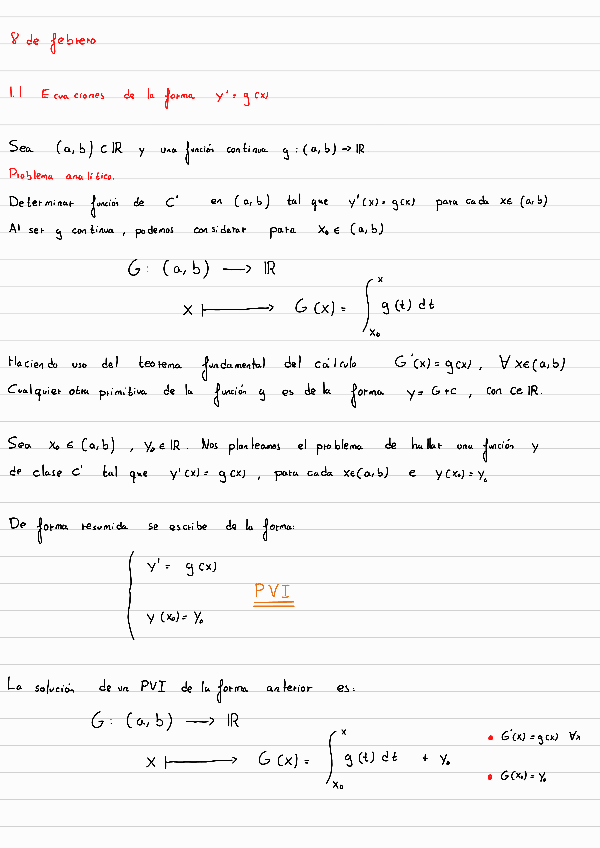 8 de febrero
1.1 Ecuaciones de la forma y' = g(x)
Sea (a,b) ⊂ ℝ y una función continua g: (a,b) → ℝ
Problema analítico.
Determinar función de C' en (a,b) tal que y'(x) = g(x) para cada x ∈ (a,b)
Al ser g continua, podemos considerar para x₀ ∈ (a,b)
G: (a,b) ⟶ ℝ
x ⟼ G(x) = ∫_{x₀}^{x} g(t) dt
Haciendo uso del teorema fundamental del cálculo G'(x) = g(x), ∀ x ∈ (a,b)
Cualquier otra primitiva de la función g es de la forma y = G + c, con c ∈ ℝ.
Sea x₀ ∈ (a,b), y₀ ∈ ℝ. Nos planteamos el problema de hallar una función y
de clase C' tal que y'(x) = g(x), para cada x ∈ (a,b) e y(x₀) = y₀
De forma resumida se escribe de la forma:
y' = g(x)
PVI
y(x₀) = y₀
La solución de un PVI de la forma anterior es:
G: (a,b) ⟶ ℝ
x ⟼ G(x) = ∫_{x₀}^{x} g(t) dt + y₀
• G'(x) = g(x) ∀x
• G(x₀) = y₀